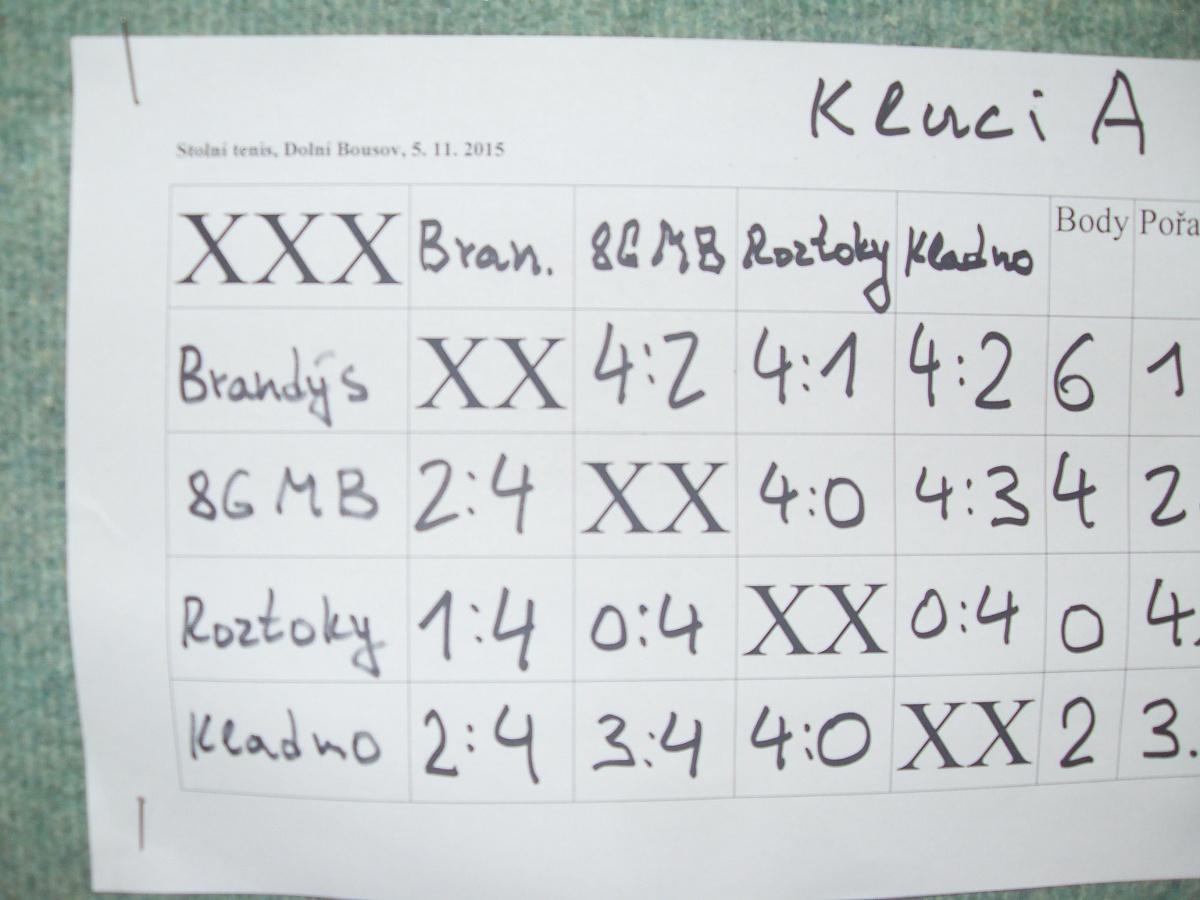 Kluci A
Stolní tenis, Dolní Bousov, 5. 11. 2015
XXX Bran. 8G MB Roztoky Kladno Body Pořa
Brandýs XX 4:2 4:1 4:2 6 1
8G MB 2:4 XX 4:0 4:3 4 2
Roztoky 1:4 0:4 XX 0:4 0 4.
Kladno 2:4 3:4 4:0 XX 2 3.